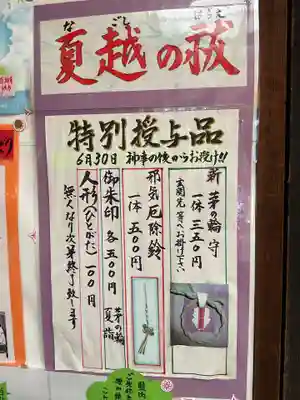 夏越の祓
なごしはらえ
特別授与品
6月30日 神事の後からお授け!!
新 茅の輪守
一体 三五〇円
玄関先等へお掛け下さい
邪気厄除鈴
一体 五〇〇円
御朱印 各五〇〇円
茅の輪
夏詣
人形(ひとがた)一〇〇円
無くなり次第終了致します
境内